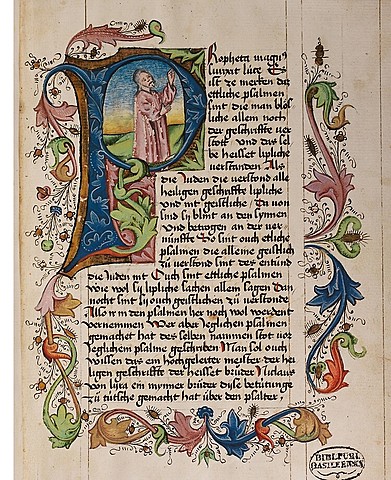 Propheta magn⁹
surrexit luce Es
ist ze merken das
ettliche psalmen
sint die man blös
liche allem noch
der geschrifft ver
stott und das sel
be heisset lipliche
verstanden Als
die Juden die verstond alle
heiligen geschrifft lipliche
und nit geistliche Da von
sind sy blint an den synnen
und betrogen an der ver
nunfft So sint ouch etliche
psalmen die alleine geistlich
zu verstond sint das entund
die Juden nit Ouch sint ettliche psalmen
wie wol sy lipliche sachen allem sagen Dan
nocht sint sy ouch geistlichen zu verstonde
Also in den psalmen her noch wol werdent
vernemmen Wer aber yeglichen psalmen
gemachet hat des selben nammen stot vor
yeglichem psalme geschriben Man sol ouch
wissen das ein hochgelerter meister der hei
ligen geschrifft der heisset brüder Niclaus
von lyra ein mynner brüder dyse betütunge
zü tütsche gemacht hat über den psalter
BIBL. PUBL.
BASILEENSIS